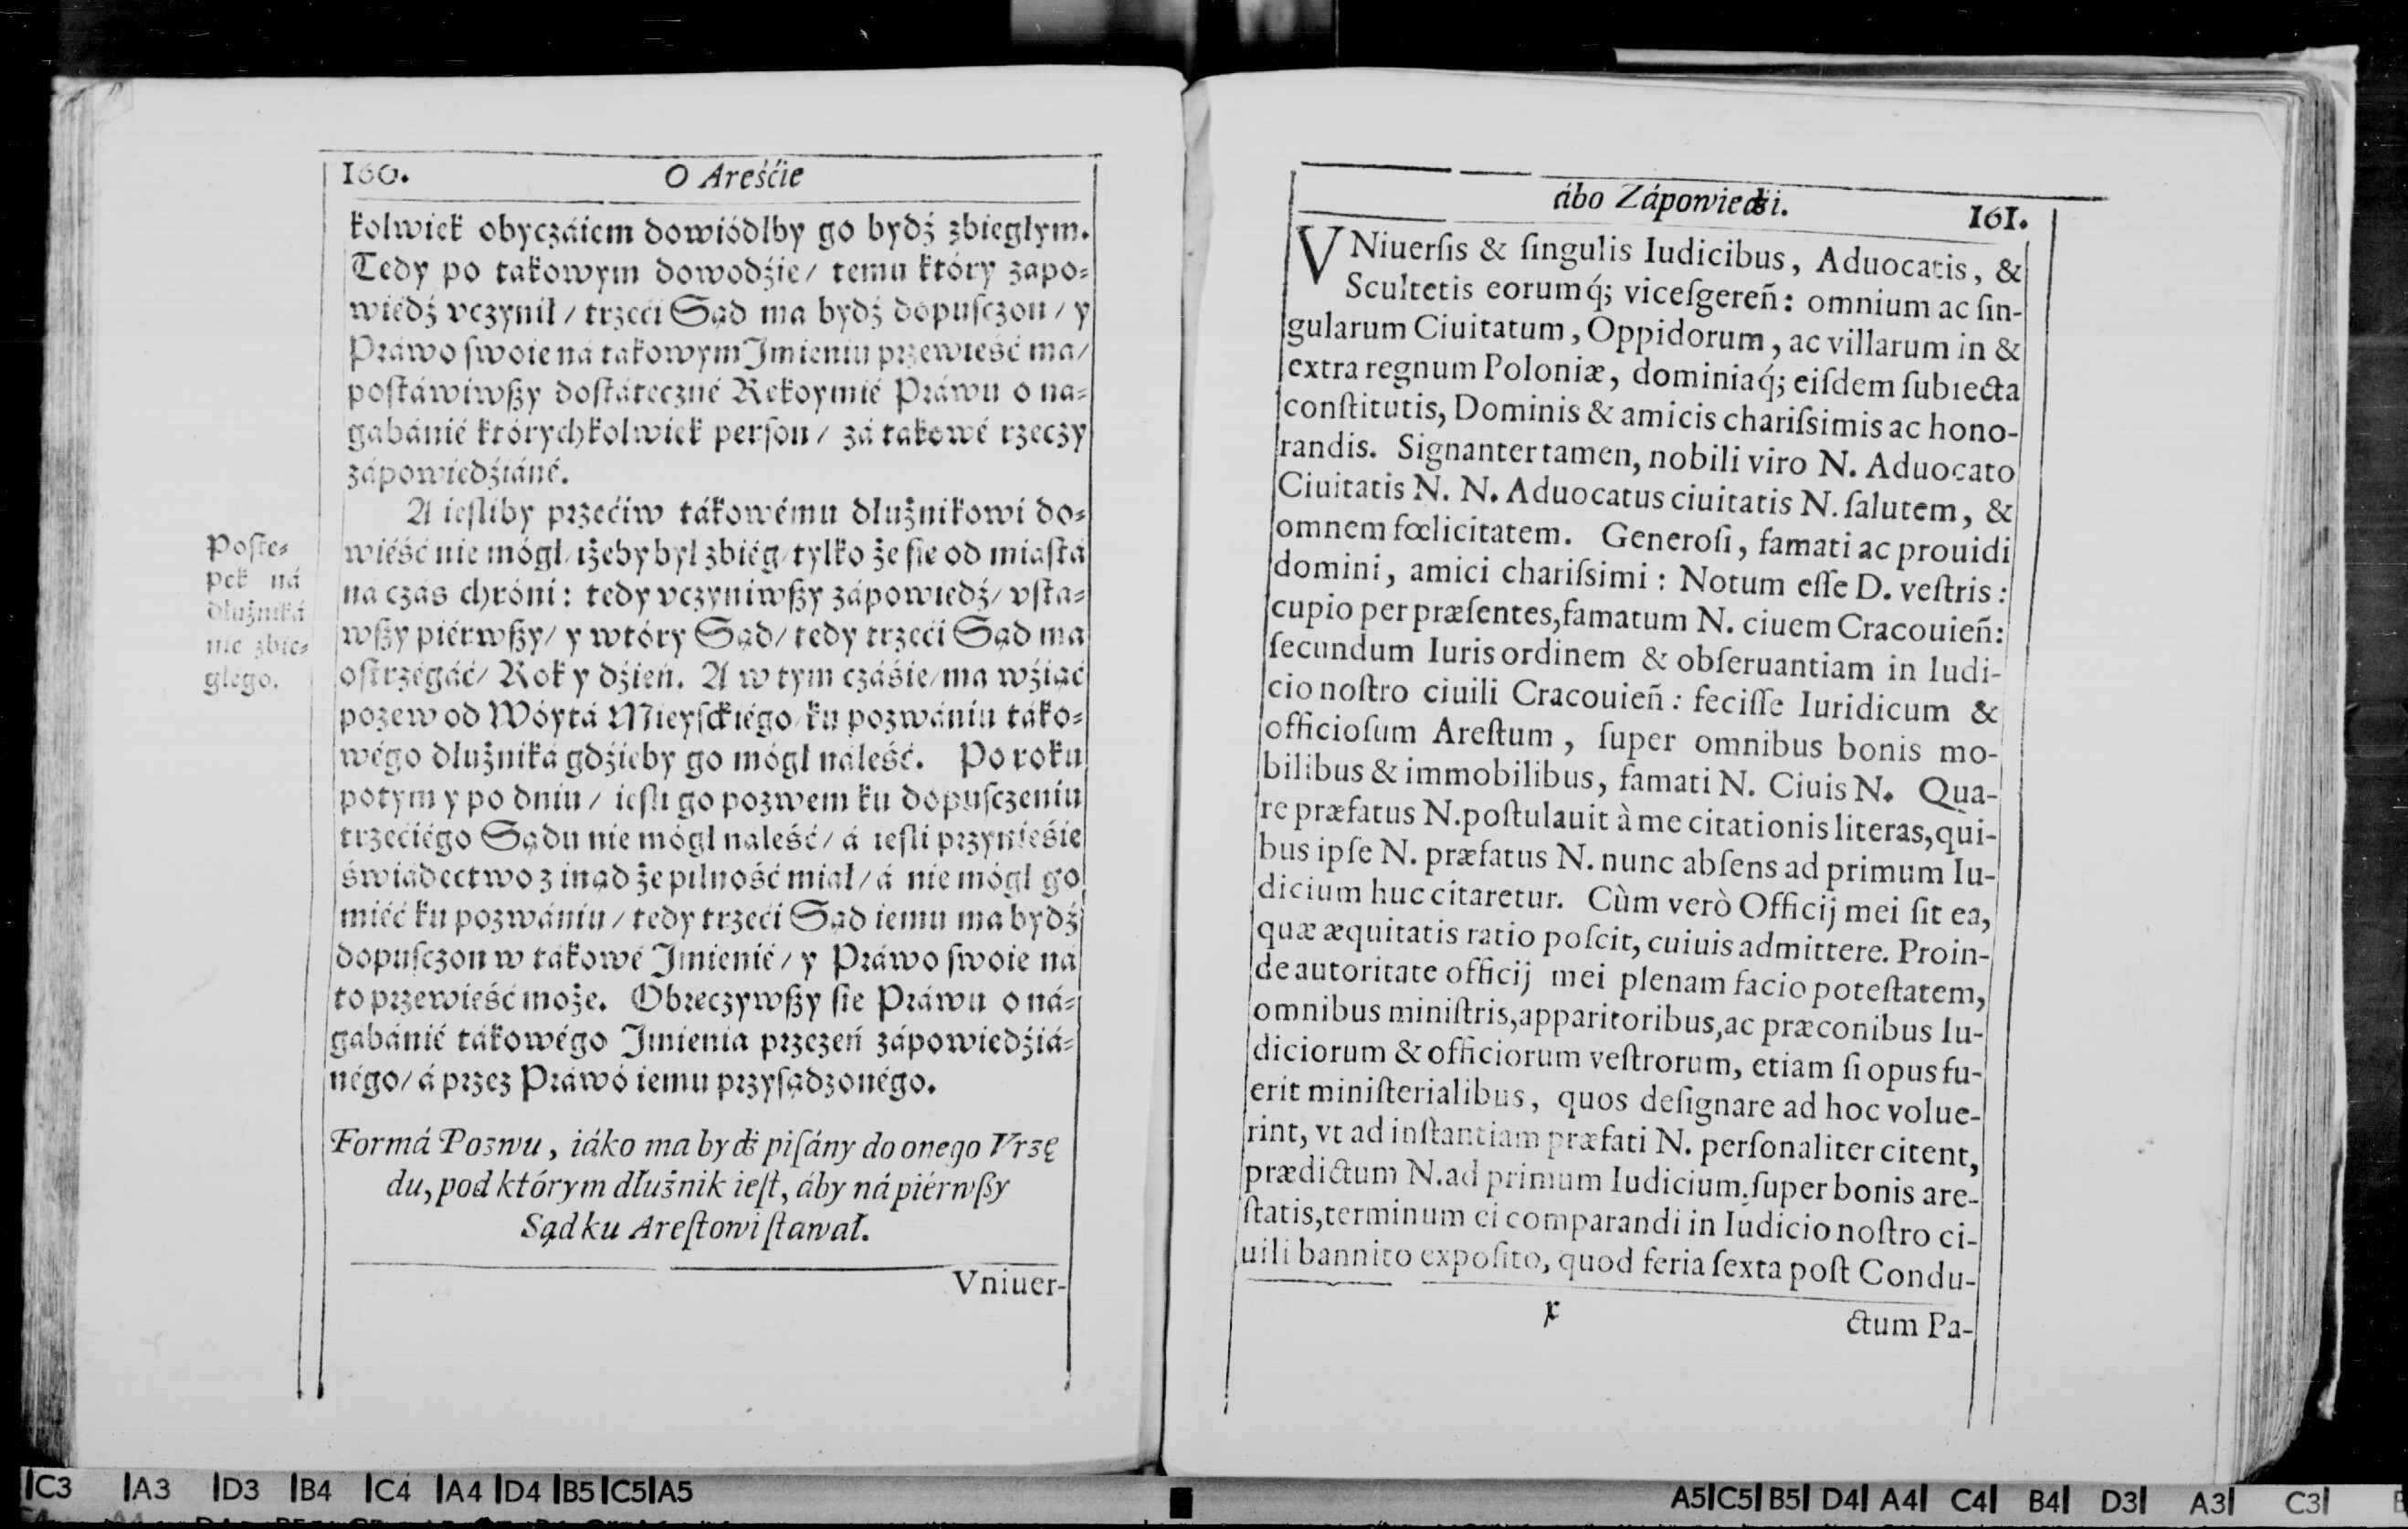 160. O Areśćie
kolwiek obyczáiem dowiódlby go bydź zbiegłym.
Tedy po takowym dowodźie/ temu który zapo-
wiédź vczynił/ trzeći Sąd ma bydź dopuſczon/ y
Práwo ſwoie ná takowym Jmieniu przewieść ma/
poſtáwiwſzy doſtáteczné Rekoymié Práwu o na-
gabánié którychkolwiek perſon/ zá takowé rzeczy
zápowiedźiáné.
A ieſliby przećiw tákowému dłużnikowi do-
wiéść nie mógl/ iżeby był zbiég/ tylko że ſie od miaſtá
na czás chróni: tedy vczyniwſzy zápowiedź/ vſta-
wſzy piérwſzy/ y wtóry Sąd/ tedy trzeći Sąd ma
oſtrzégáć/ Rok y dźień. A w tym czáśie/ ma wźiąć
pozew od Wóytá Mieyſckiégo/ ku pozwániu táko-
wégo dlużniká gdźieby go mógl náleść. Po roku
potym y po dniu/ ieſli go pozwem ku dopuſczeniu
trzećiégo Sądu nie mógl náleść/ á ieſli przynieśie
świádectwo z inąd że pilność miał/ á nie mógl go
miéć ku pozwániu/ tedy trzeći Sąd iemu ma bydź
dopuſczon w tákowé Jmienié/ y Práwo ſwoie ná
to przewieść może. Obreczywſzy ſie Práwu o ná-
gábánié tákowégo Jmienia przezeń zápowiedźiá-
négo/ á przez Práwó iemu przyſądzonégo.
Poſte-
pek ná
dlużniká
nie zbie-
głégo.
Formá Pozwu, iáko ma bydź piſány do onego Vrzę
du, pod którym dłużnik ieſt, áby ná piérwſzy
Sąd ku Areſtowi ſtawał.
Vniuer-
ábo Zápowiedźi. 161.
VNiuerſis & ſingulis Iudicibus, Aduocatis, &
Scultetis eorumq́; viceſgereñ: omnium ac ſin-
gularum Ciuitatum, Oppidorum, ac villarum in &
extra regnum Poloniæ, dominiaq́; eiſdem ſubiecta
conſtitutis, Dominis & amicis chariſsimis ac hono-
randis. Signanter tamen, nobili viro N. Aduocato
Ciuitatis N. N. Aduocatus ciuitatis N. ſalutem, &
omnem fœlicitatem. Generoſi, famati ac prouidi
domini, amici chariſsimi: Notum eſſe D. veſtris:
cupio per præſentes, famatum N. ciuem Cracouieñ:
ſecundum Iuris ordinem & obſeruantiam in Iudi-
cio noſtro ciuili Cracouieñ: feciſſe Iuridicum &
officioſum Areſtum, ſuper omnibus bonis mo-
bilibus & immobilibus, famati N. Ciuis N. Qua-
re præfatus N. poſtulauit à me citationis literas, qui-
bus ipſe N. præfatus N. nunc abſens ad primum Iu-
dicium huc citaretur. Cùm verò Officij mei ſit ea,
quæ æquitatis ratio poſcit, cuiuis admittere. Proin-
de autoritate officij mei plenam facio poteſtatem,
omnibus miniſtris, apparitoribus, ac præconibus Iu-
diciorum & officiorum veſtrorum, etiam ſi opus fu-
erit miniſterialibus, quos deſignare ad hoc volue-
rint, vt ad inſtantiam præfati N. perſonaliter citent,
prædictum N. ad primum Iudicium, ſuper bonis are-
ſtatis, terminum ei comparandi in Iudicio noſtro ci-
uili bannito expoſito, quod feria ſexta poſt Condu-
x ctum Pa-
C3 A3 D3 B4 C4 A4 D4 B5 C5 A5
A5 C5 B5 D4 A4 C4 B4 D3 A3 C3